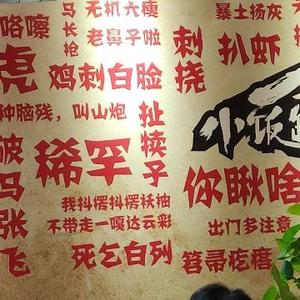 马长枪
无机六瘦
老鼻子啦
暴土扬灰
咯嚷
虎
鸡刺白脸
刺挠
扒虾
种脑残，叫山炮
扯犊子
稀罕
破马张飞
我抖愣抖愣袄袖
不带走一嘎达云彩
死乞白列
你瞅啥
出门多注意
小饭